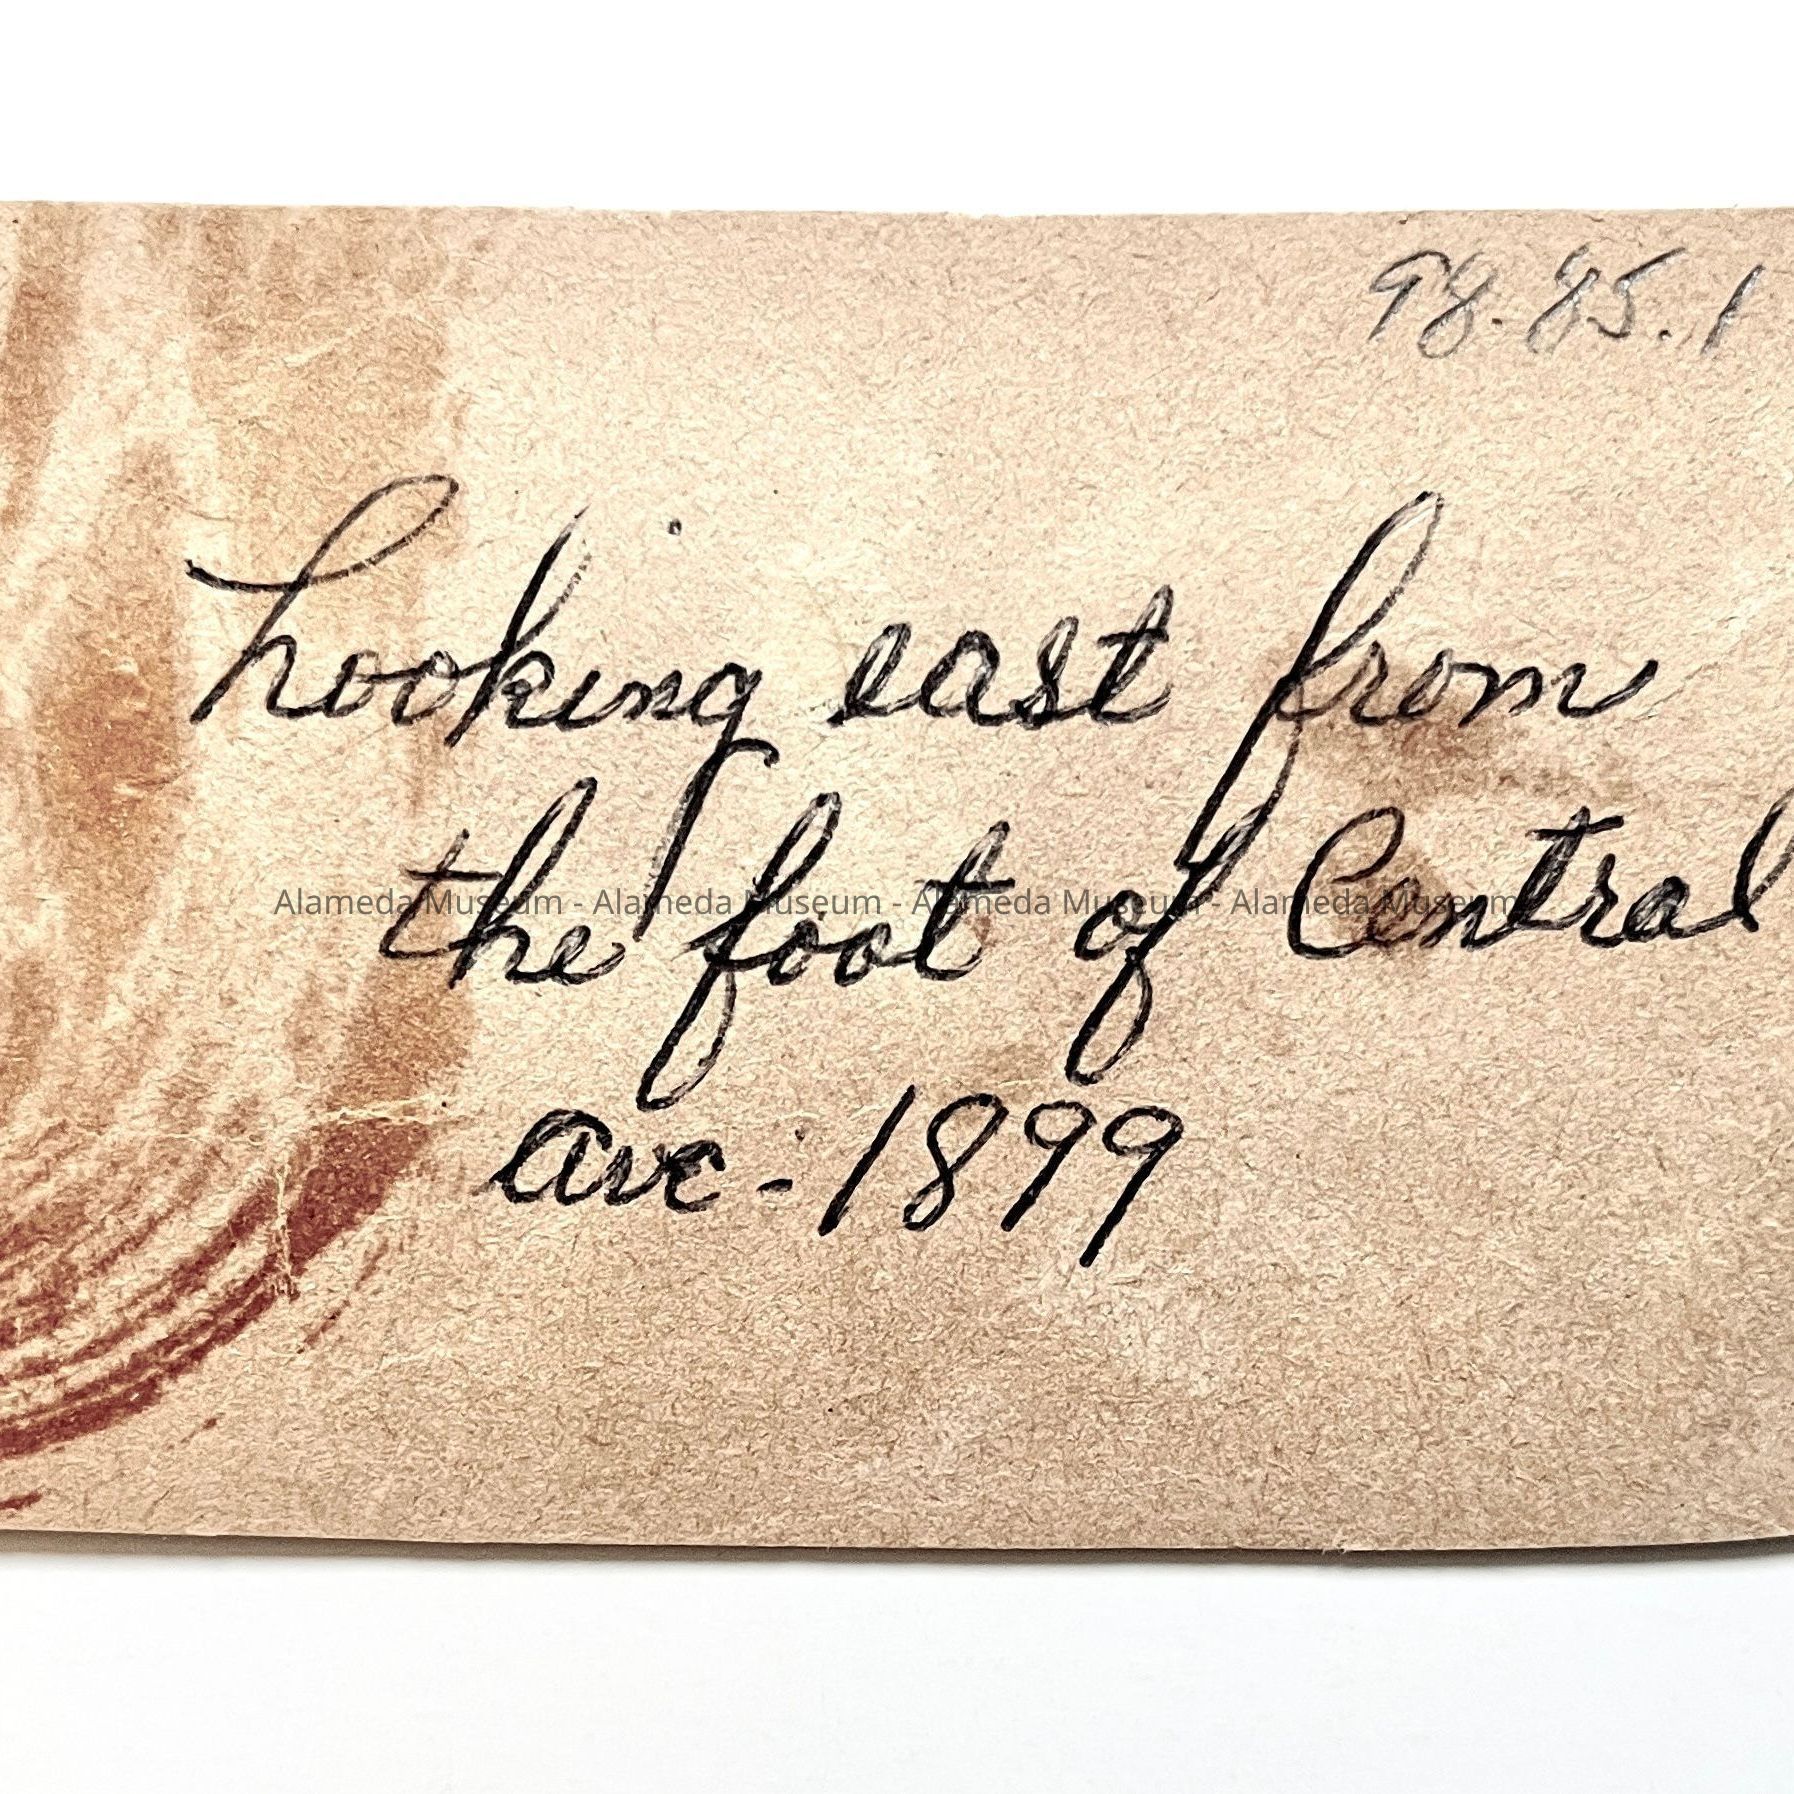 98.85.1
Looking east from
the foot of Central
Alameda Museum - Alameda Museum - Alameda Museum - Alameda Museum
ave - 1899